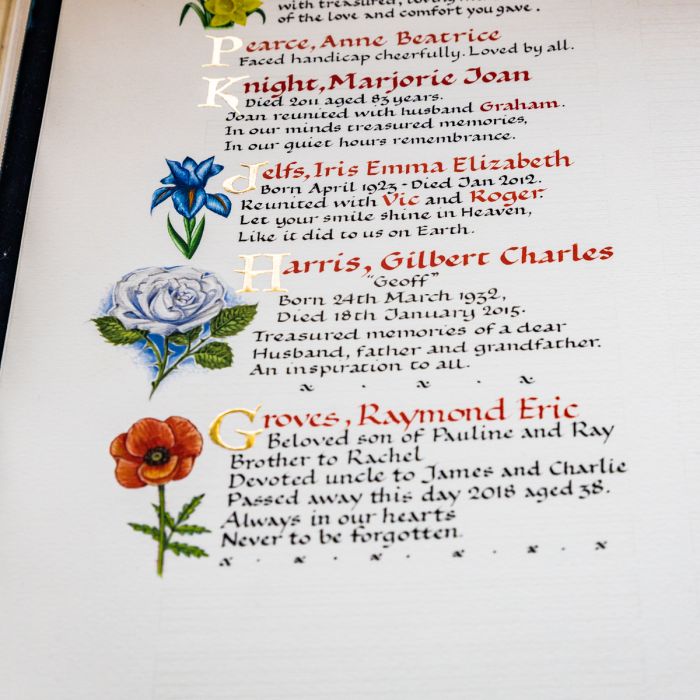 with treasured, loving
of the love and comfort you gave.
Pearce, Anne Beatrice
Faced handicap cheerfully. Loved by all.
Knight, Marjorie Joan
Died 2011 aged 83 years.
Joan reunited with husband Graham.
In our minds treasured memories,
In our quiet hours remembrance.
Jelfs, Iris Emma Elizabeth
Born April 1923 - Died Jan 2012.
Reunited with Vic and Roger.
Let your smile shine in Heaven,
Like it did to us on Earth.
Harris, Gilbert Charles
"Geoff"
Born 24th March 1932,
Died 18th January 2015.
Treasured memories of a dear
Husband, father and grandfather.
An inspiration to all.
Groves, Raymond Eric
Beloved son of Pauline and Ray
Brother to Rachel
Devoted uncle to James and Charlie
Passed away this day 2018 aged 38.
Always in our hearts
Never to be forgotten.